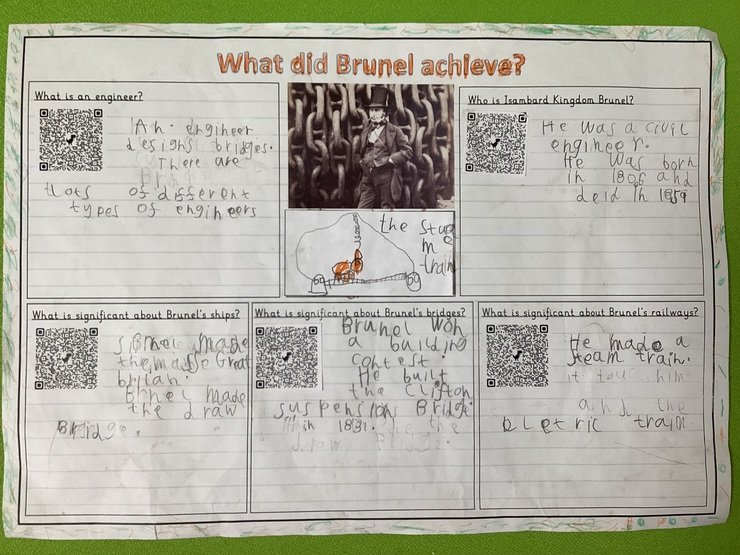 What did Brunel achieve?
What is an engineer?
An engineer
designs bridges.
There are
lots of different
types of engineers
the steam
train
Who is Isambard Kingdom Brunel?
He was a civil
engineer.
He was born
in 1806 and
deid in 1859
What is significant about Brunel's ships?
made
the made Great
britan.
made
the draw
Bridge.
What is significant about Brunel's bridges?
Brunel won
a building
contest.
He built
the Clifton
suspension Bridge
in 1831. the
draw
What is significant about Brunel's railways?
He made a
steam train.
it him
and the
eletric train